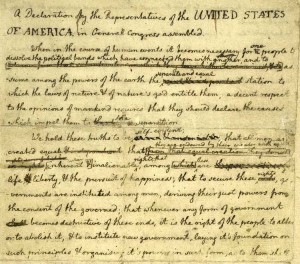 A Declaration by the Representatives of the UNITED STATES
OF AMERICA, in General Congress assembled.
When in the course of human events it becomes necessary for one people to
dissolve the political bands which have connected them with another, and to
assume among the powers of the earth the separate and equal station to
which the laws of nature & of nature's god entitle them, a decent respect
to the opinions of mankind requires that they should declare the causes
which impel them to the separation.
We hold these truths to be self-evident, that all men are
created equal
they are endowed by their creator with
inherent & inalienable among which are
life, & liberty, & the pursuit of happiness; that to secure these rights, go-
vernments are instituted among men, deriving their just powers from
the consent of the governed; that whenever any form of government
becomes destructive of these ends, it is the right of the people to alter
or to abolish it, & to institute new government, laying it's foundation on
such principles & organising it's powers in such form, as to them shall